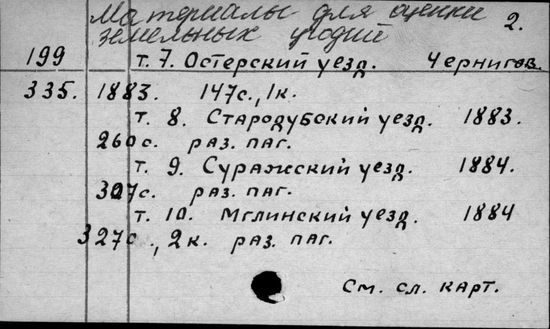 Материалы для оценки 2.
земельных угодий
199 т. 7. Остерский уезд. Чернигов.
335. 1883. 147с., 1к.
т. 8. Стародубский уезд. 1883.
260с. раз. паг.
т. 9. Суражский уезд. 1884.
307с. раз. паг.
т. 10. Мглинский уезд. 1884
327с., 2к. раз. паг.
См. сл. карт.